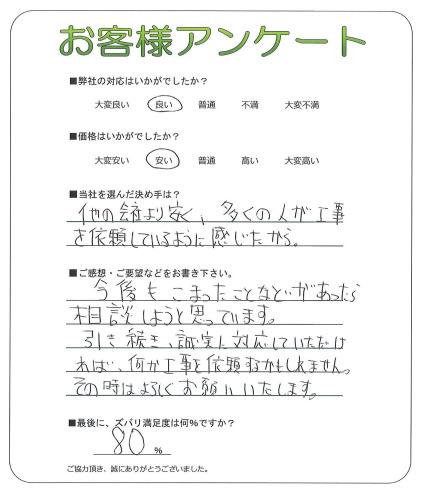 お客様アンケート
■弊社の対応はいかがでしたか？
大変良い 良い 普通 不満 大変不満
■価格はいかがでしたか？
大変安い 安い 普通 高い 大変高い
■当社を選んだ決め手は？
他の会社より安く、多くの人が工事
を依頼しているように感じたから。
■ご感想・ご要望などをお書き下さい。
今後もこまったことなどがあったら
相談しようと思っています。
引き続き、誠実に対応していただけ
れば、何か工事を依頼するかもしれません。
その時はよろしくお願いいたします。
■最後に、ズバリ満足度は何%ですか？
80 %
ご協力頂き、誠にありがとうございました。